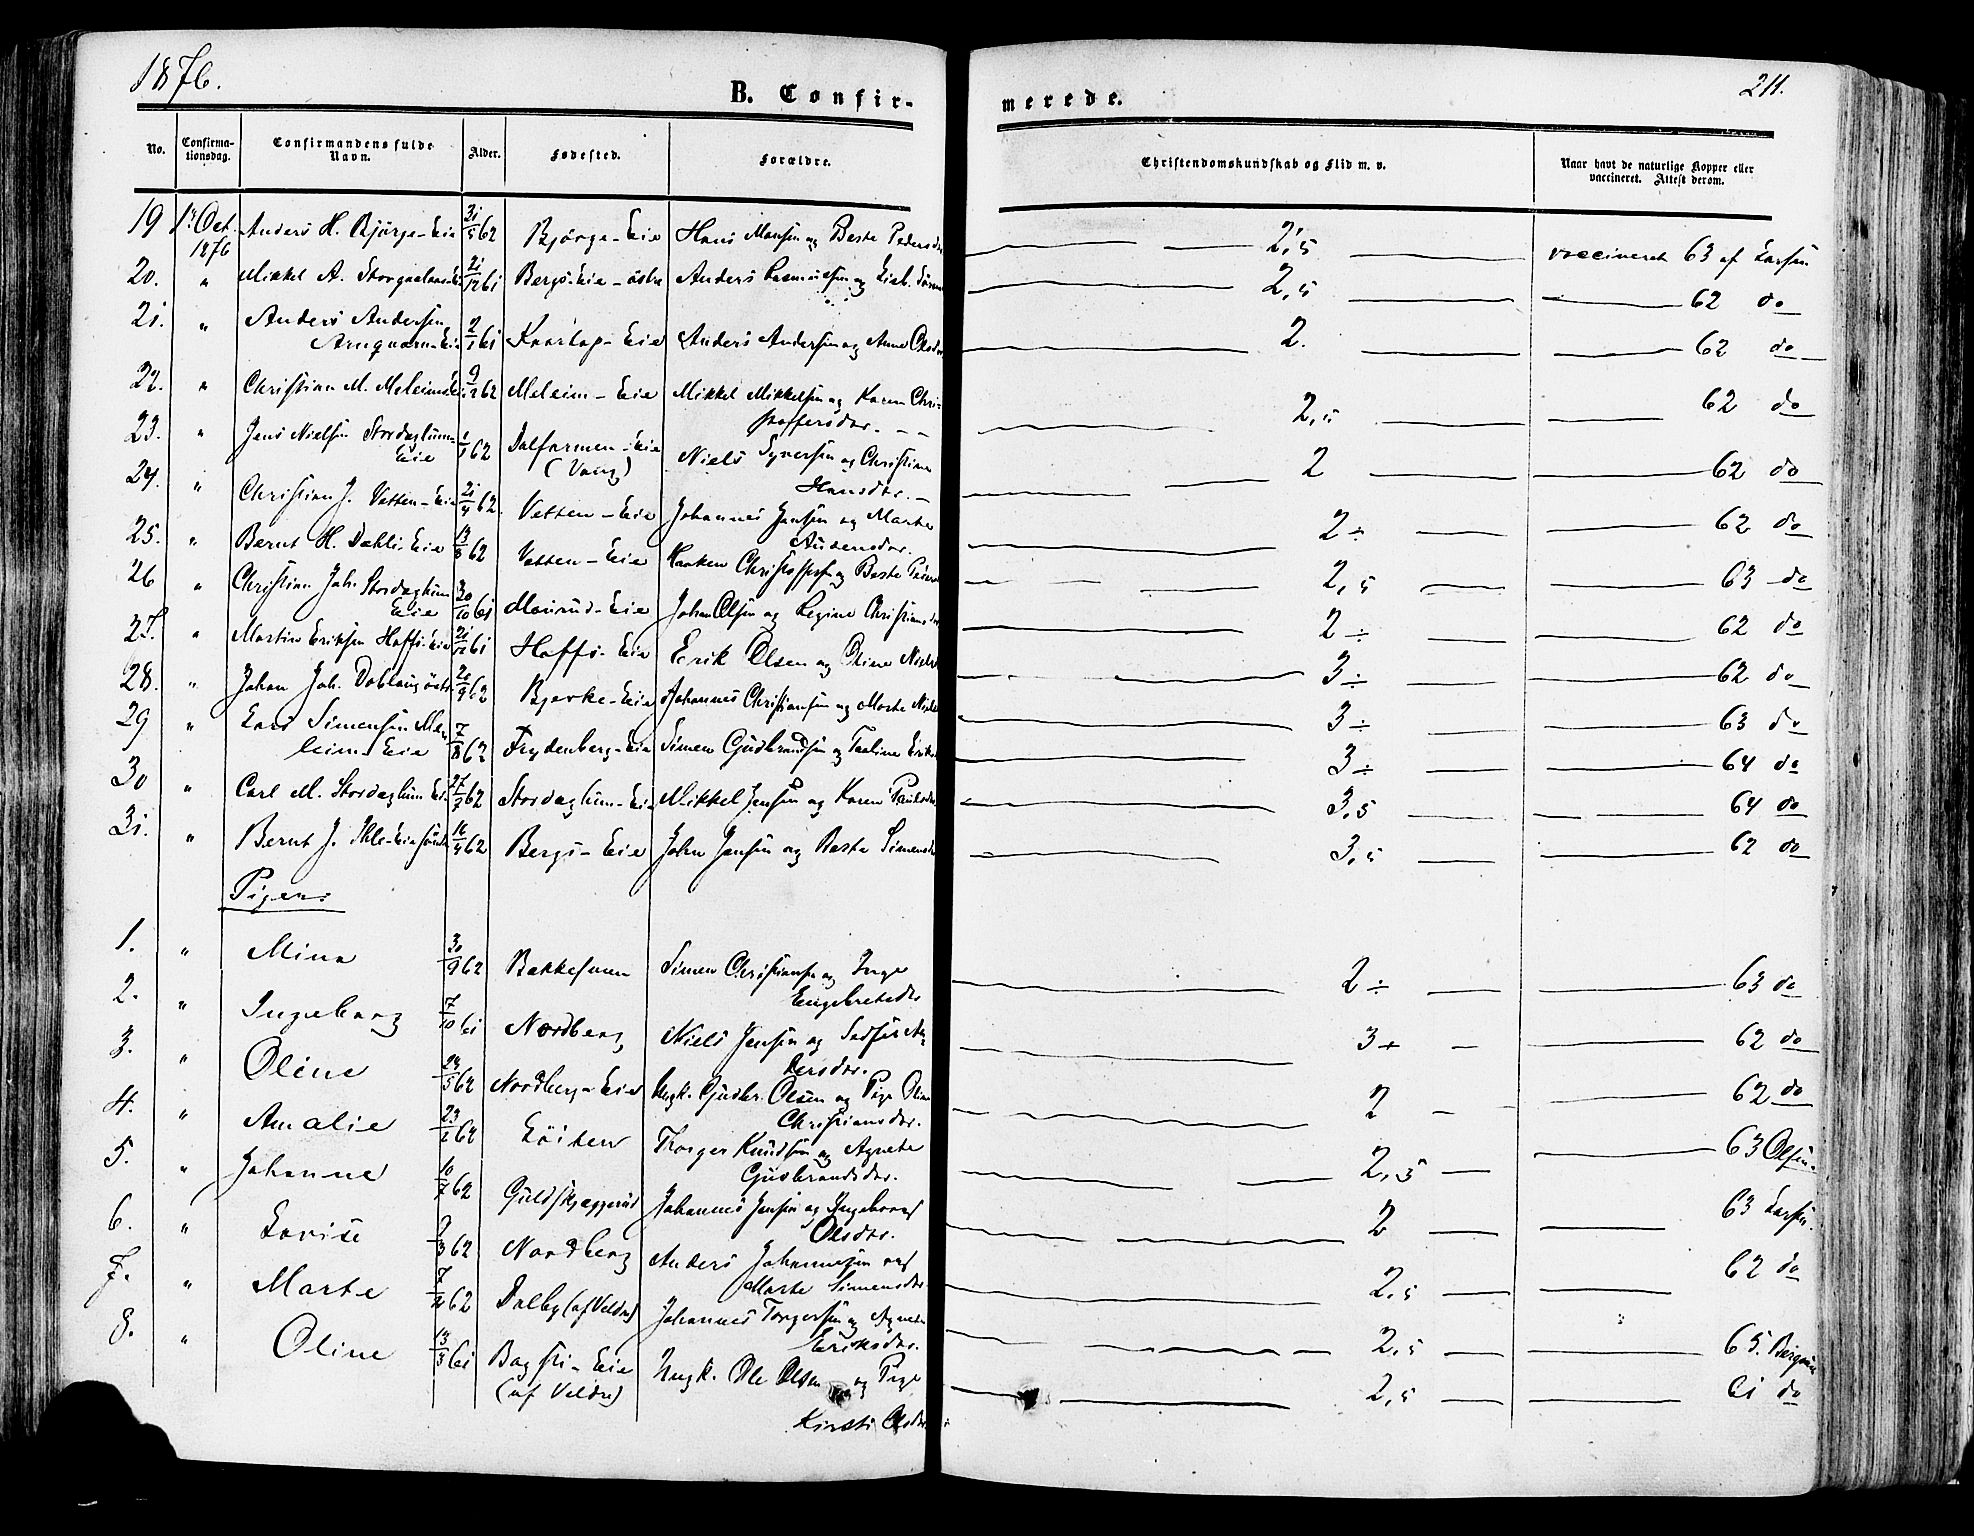 1876.
B. Confirmerede.
211.
No. Confirmationsdag. Confirmandens fulde Navn. Alder. Fødested. Forældre. Christendomskundskab og Flid m. v. Naar havt de naturlige Kopper eller vaccineret. Attest derom.
19 1ste Oct. 1876 Anders H. Bjørge-Eie 31/5 62 Bjørge-Eie Hans Monsen og Berte Pedersdr 2,5 vaccineret 63 af Larsen
20. " Mikkel A. 21/12 61 Bergs-Eie-østre Anders Rasmussen og Lisb. 2,5 62 do
21. " Anders Andersen 2/1 61 Anders Andersen og Anne Olsdr 2. 62 do
22. " Christian M. 62 Meleim-Eie Mikkel Mikkelsen og Karen Christoffersdr. 2,5 62 do
23. " Jens Nielsen Stordeglum-Eie 1/1 62 Dalfarmen-Eie (Vang) Niels Syversen og Christiane Hansdr. 2 62 do
24. " Christian J. Vetten-Eie 21/4 62. Vetten-Eie Johannes Jensen og Marte 2÷ 62 do
25. " Bernt H. Dahli-Eie 13/8 62 Vetten-Eie Haaken Christoffersen og Berte 2,5 63 do
26 " Christian Joh. Stordeglum Eie 30/10 61 Johan Olsen og Regine Christiansdr 2÷ 62 do
27. " Martin Eriksen Hoffs-Eie 21/12 61 Hoffs-Eie Erik Olsen og Oline Nielsdr 3÷ 62 do
28. " Johan Joh. Doblaug østre 20/9 62 Bjerke-Eie Johannes Christiansen og Marte 3÷ 63 do
29 " Lars Simensen Meleim-Eie 7/8 62 Frydenberg-Eie Simen Gudbrandsen og 3÷ 64 do
30 " Carl M. Stordeglum Eie 27/7 62 Stordeglum-Eie Mikkel Jensen og Karen Paulsdr 3,5 64 do
31. " Bernt J. Ihle-Eie søndre 16/4 62 Bergs-Eie John Jensen og Berte Simensdr 3,5 62 do
Piger:
1. " Mina 30/9 62 Bakkehuen Simen Christiansen og Inge Engebretsdr 2÷ 63 do
2. " Ingeborg 7/10 61 Nordberg Niels Jensen og Andersdr. 3+ 62 do
3. " Oline 24/5 62 Nordberg-Eie Ungk. Gudbr. Olsen og Pige Oline Christiansdr. 2 62 do
4. " Amalie 62 Löiten Thorger Knudsen og Agnete Gudbrandsdr. 2,5 63 Olsen.
5. " Johanne 10/7 62 Guldskjæggerud Johannes Jensen og Ingeborg Olsdr. 2 63 Larsen.
6. " Lovise 2/3 62 Nordberg Anders Johannesen og Marte Simensdr. 2,5 62 do
7. " Marte 62 Dalby (af Veldre) Johannes Torgersen og Agnete Eriksdr. 2,5 65. Bergsen
8. " Oline 13/3 61 Bagsti-Eie (af Veldre) Ungk. Ole Olsen og Pige Kirsti Olsdr. 2,5 61 do